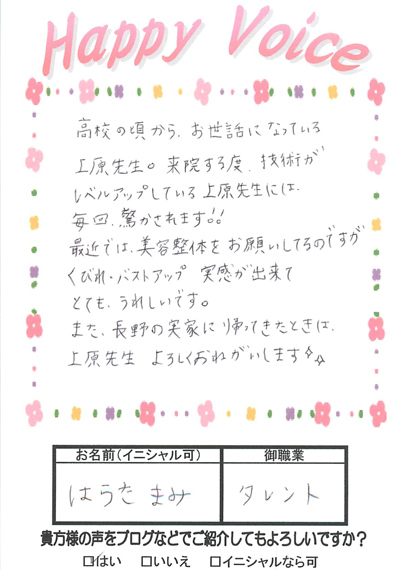 Happy Voice
高校の頃から、お世話になっている
上原先生。来院する度、技術が
レベルアップしている上原先生には、
毎回、驚かされます!!
最近では、美容整体をお願いしてるのですが
くびれ・バストアップ 実感が出来て
とても、うれしいです。
また、長野の実家に帰ってきたときは、
上原先生 よろしくおねがいします
お名前(イニシャル可) 御職業
はらだ まみ タレント
貴方様の声をブログなどでご紹介してもよろしいですか?
☑はい □いいえ □イニシャルなら可